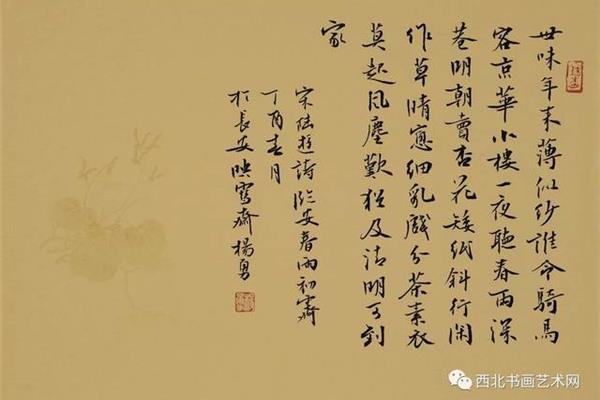 世味年来薄似纱誰令騎馬
客京華小樓一夜聽春雨深
巷明朝賣杏花矮紙斜行闲
作草晴窗细乳戲分茶素衣
莫起風塵歎猶及清明可到
家
宋陸游詩臨安春雨初霽
丁酉春月
於長安映齋楊勇
西北书画艺术网